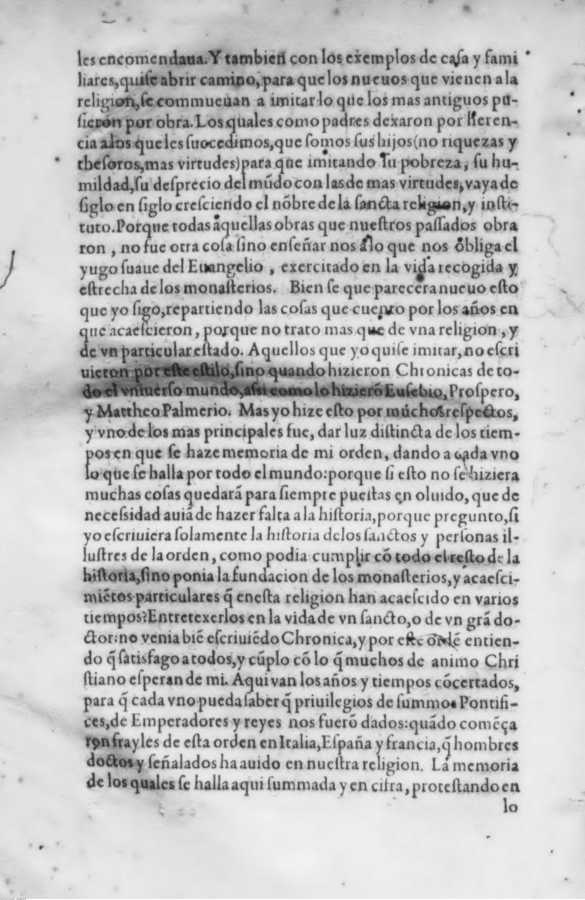 les encomendaua. Y tambien con los exemplos de casa y fami
liares, quise abrir camino, para que los nueuos que vienen a la
religion, se commueuan a imitar lo que los mas antiguos pu-
sieron por obra. Los quales como padres dexaron por heren-
cia a los que les succedimos, que somos sus hijos (no riquezas y
thesoros, mas virtudes) para que imitando su pobreza, su hu-
mildad, su desprecio del mũdo con las de mas virtudes, vaya de
siglo en siglo cresciendo el nõbre de la sancta religion, y insti-
tuto. Porque todas aquellas obras que nuestros passados obra
ron, no fue otra cosa sino enseñar nos a lo que nos obliga el
yugo suaue del Euangelio, exercitado en la vida recogida y
estrecha de los monasterios. Bien se que parecera nueuo esto
que yo sigo, repartiendo las cosas que cuento por los años en
que acaescieron, porque no trato mas que de vna religion, y
de vn particular estado. Aquellos que yo quise imitar, no escri
uieron por este estilo, sino quando hizieron Chronicas de to-
do el vniuerso mundo, assi como lo hizierõ Eusebio, Prospero,
y Mattheo Palmerio. Mas yo hize esto por muchos respectos,
y vno de los mas principales fue, dar luz distincta de los tiem-
pos en que se haze memoria de mi orden, dando a cada vno
lo que se halla por todo el mundo: porque si esto no se hiziera
muchas cosas quedarã para siempre puestas en oluido, que de
necessidad auiã de hazer falta a la historia, porque pregunto, si
yo escriuiera solamente la historia de los sanctos y personas il-
lustres de la orden, como podia cumplir cõ todo el resto de la
historia, sino ponia la fundacion de los monasterios, y acaesci-
miẽtos particulares q̃ en esta religion han acaescido en varios
tiempos? Entretexerlos en la vida de vn sancto, o de vn grã do-
ctor: no venia biẽ escriuiẽdo Chronica, y por este ordẽ entien-
do q̃ satisfago a todos, y cũplo cõ lo q̃ muchos de animo Chri
stiano esperan de mi. Aqui van los años y tiempos cõcertados,
para q̃ cada vno pueda saber q̃ priuilegios de summos Pontifi-
ces, de Emperadores y reyes nos fuerõ dados: quãdo comẽça
ron frayles de esta orden en Italia, España y francia, q̃ hombres
doctos y señalados ha auido en nuestra religion. La memoria
de los quales se halla aqui summada y en cifra, protestando en
lo